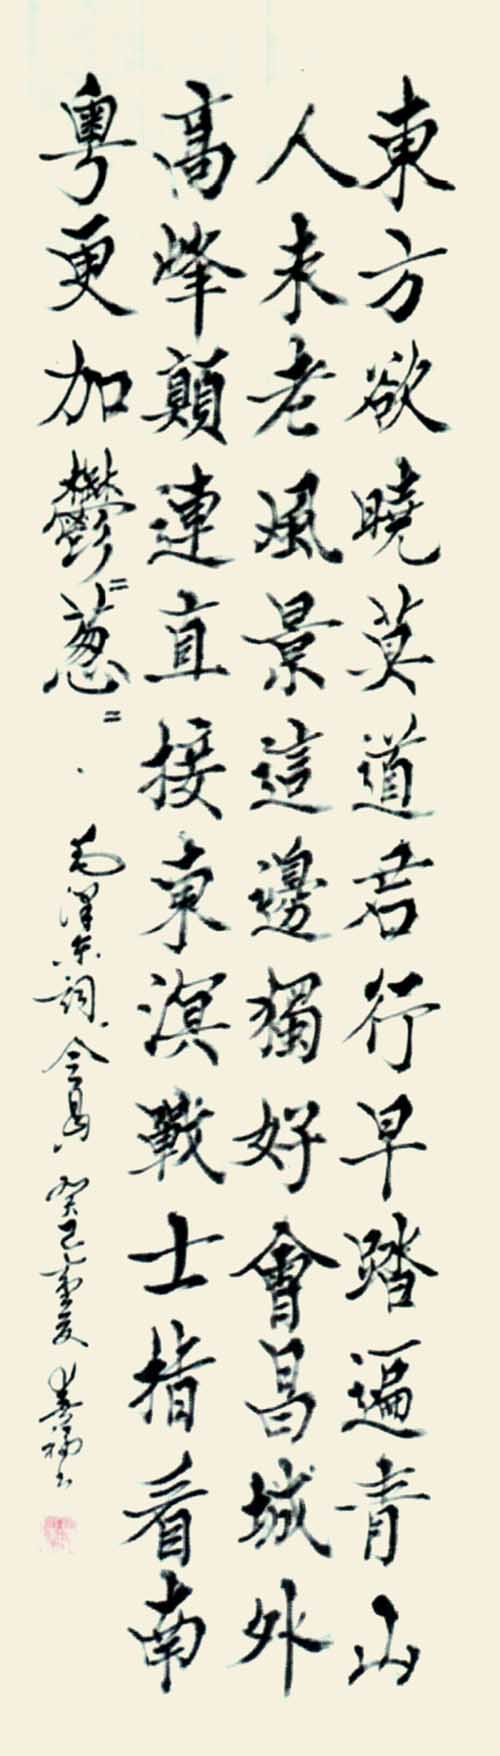 東方欲曉莫道君行早踏遍青山
人未老風景這邊獨好會昌城外
高峰顛連直接東溟戰士指看南
粵更加鬱〻葱〻
毛泽东词会昌 癸巳 夏 书